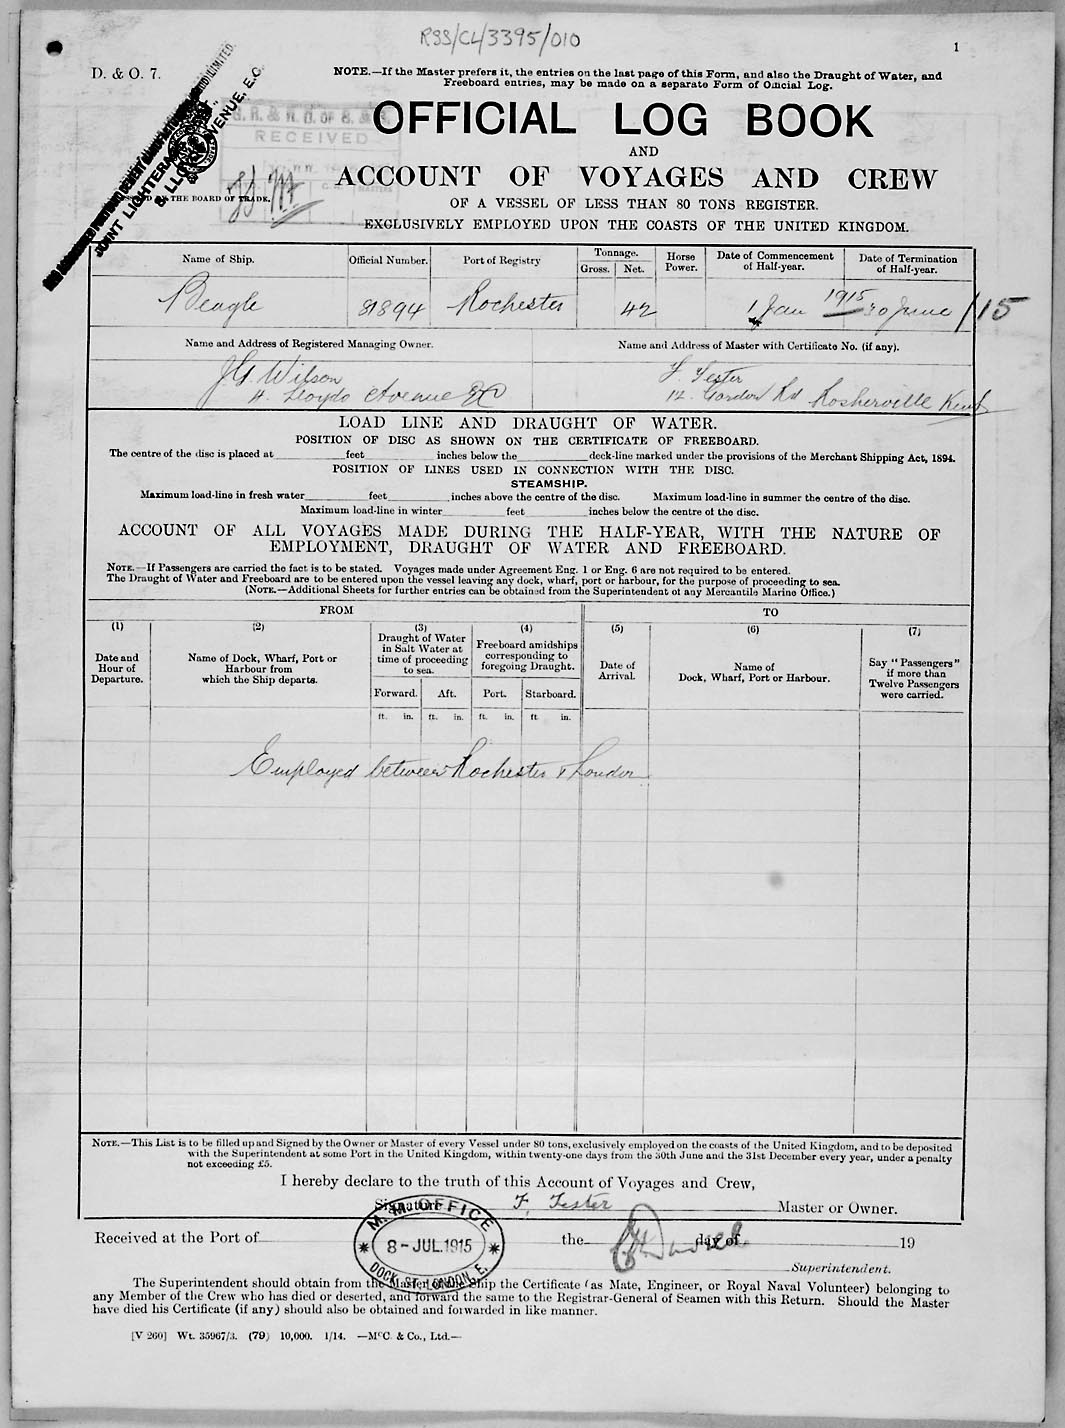 RSS/CL/3395/010
1
D. & O. 7.
NOTE.—If the Master prefers it, the entries on the last page of this Form, and also the Draught of Water, and
Freeboard entries, may be made on a separate Form of Official Log.
OFFICIAL LOG BOOK
RECEIVED
AND
ACCOUNT OF VOYAGES AND CREW
THE BOARD OF TRADE.
OF A VESSEL OF LESS THAN 80 TONS REGISTER.
EXCLUSIVELY EMPLOYED UPON THE COASTS OF THE UNITED KINGDOM.
Name of Ship. Official Number. Port of Registry Tonnage. Gross. Net. Horse Power. Date of Commencement of Half-year. Date of Termination of Half-year.
Beagle 81894 Rochester 42 1 Jan 1915 30 June /15
Name and Address of Registered Managing Owner. Name and Address of Master with Certificate No. (if any).
J.G. Wilson F. Tester
4. Lloyds Avenue EC 12. Gordon Rd Rosherville Kent
LOAD LINE AND DRAUGHT OF WATER.
POSITION OF DISC AS SHOWN ON THE CERTIFICATE OF FREEBOARD.
The centre of the disc is placed at feet inches below the deck-line marked under the provisions of the Merchant Shipping Act, 1894.
POSITION OF LINES USED IN CONNECTION WITH THE DISC.
STEAMSHIP.
Maximum load-line in fresh water feet inches above the centre of the disc. Maximum load-line in summer the centre of the disc.
Maximum load-line in winter feet inches below the centre of the disc.
ACCOUNT OF ALL VOYAGES MADE DURING THE HALF-YEAR, WITH THE NATURE OF
EMPLOYMENT, DRAUGHT OF WATER AND FREEBOARD.
NOTE.—If Passengers are carried the fact is to be stated. Voyages made under Agreement Eng. 1 or Eng. 6 are not required to be entered.
The Draught of Water and Freeboard are to be entered upon the vessel leaving any dock, wharf, port or harbour, for the purpose of proceeding to sea.
(NOTE.—Additional Sheets for further entries can be obtained from the Superintendent of any Mercantile Marine Office.)
FROM TO
(1) (2) (3) (4) (5) (6) (7)
Date and Hour of Departure.
Name of Dock, Wharf, Port or Harbour from which the Ship departs.
Draught of Water in Salt Water at time of proceeding to sea.
Freeboard amidships corresponding to foregoing Draught.
Date of Arrival.
Name of Dock, Wharf, Port or Harbour.
Say "Passengers" if more than Twelve Passengers were carried.
Forward. Aft. Port. Starboard.
ft. in. ft. in. ft. in. ft in.
Employed between Rochester & London
NOTE.—This List is to be filled up and Signed by the Owner or Master of every Vessel under 80 tons, exclusively employed on the coasts of the United Kingdom, and to be deposited
with the Superintendent at some Port in the United Kingdom, within twenty-one days from the 30th June and the 31st December every year, under a penalty
not exceeding £5.
I hereby declare to the truth of this Account of Voyages and Crew,
Signature F. Tester Master or Owner.
M. M. OFFICE
8-JUL.1915
DOCK ST. LONDON, E.
Received at the Port of the day of 19
Superintendent.
The Superintendent should obtain from the Master of the Ship the Certificate (as Mate, Engineer, or Royal Naval Volunteer) belonging to
any Member of the Crew who has died or deserted, and forward the same to the Registrar-General of Seamen with this Return. Should the Master
have died his Certificate (if any) should also be obtained and forwarded in like manner.
[V 260] Wt. 35967/3. (79) 10,000. 1/14. —McC. & Co., Ltd.—